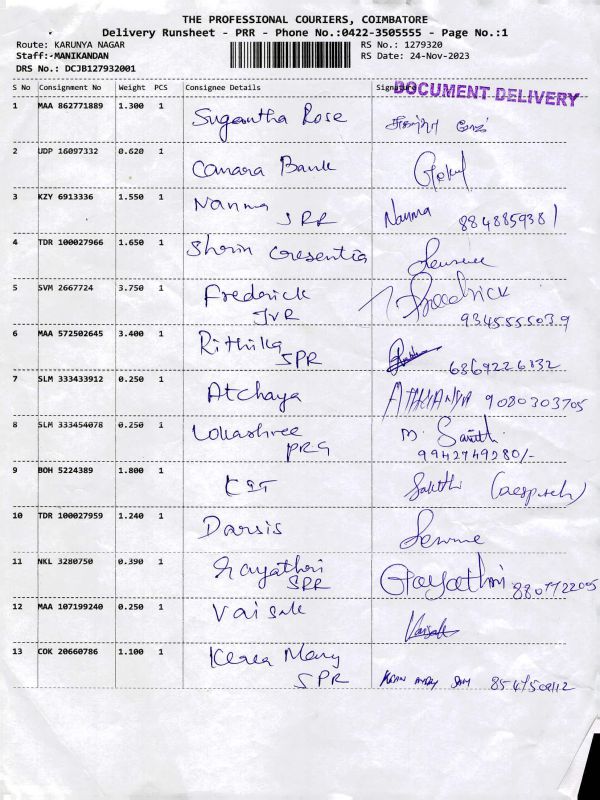 THE PROFESSIONAL COURIERS, COIMBATORE
Delivery Runsheet - PRR - Phone No.:0422-3505555 - Page No.:1
Route: KARUNYA NAGAR RS No.: 1279320
Staff:-MANIKANDAN RS Date: 24-Nov-2023
DRS No.: DCJB127932001
S No Consignment No Weight PCS Consignee Details Signature
DOCUMENT DELIVERY
1 MAA 862771889 1.300 1 Sugantha Rose
2 UDP 16097332 0.620 1 Canara Bank Gokul
3 KZY 6913336 1.550 1 Nanma Nanma
SRR 8848859381
4 TDR 100027966 1.650 1
5 SVM 2667724 3.750 1 Fredrick Fredrick
JVR 9345555039
6 MAA 572502645 3.400 1 Rithika
SPR 6869226832
7 SLM 333433912 0.250 1 Atchaya 9080303705
8 SLM 333454078 0.250 1 Lokashree M.
PRG 9942749280/-
9 BOH 5224389 1.800 1 Sakthi
10 TDR 100027959 1.240 1 Darsis
11 NKL 3280750 0.390 1 Gayathri Gayathri
SRR
12 MAA 107199240 0.250 1 Vaisak Vaisak
13 COK 20660786 1.100 1 Mary
SPR